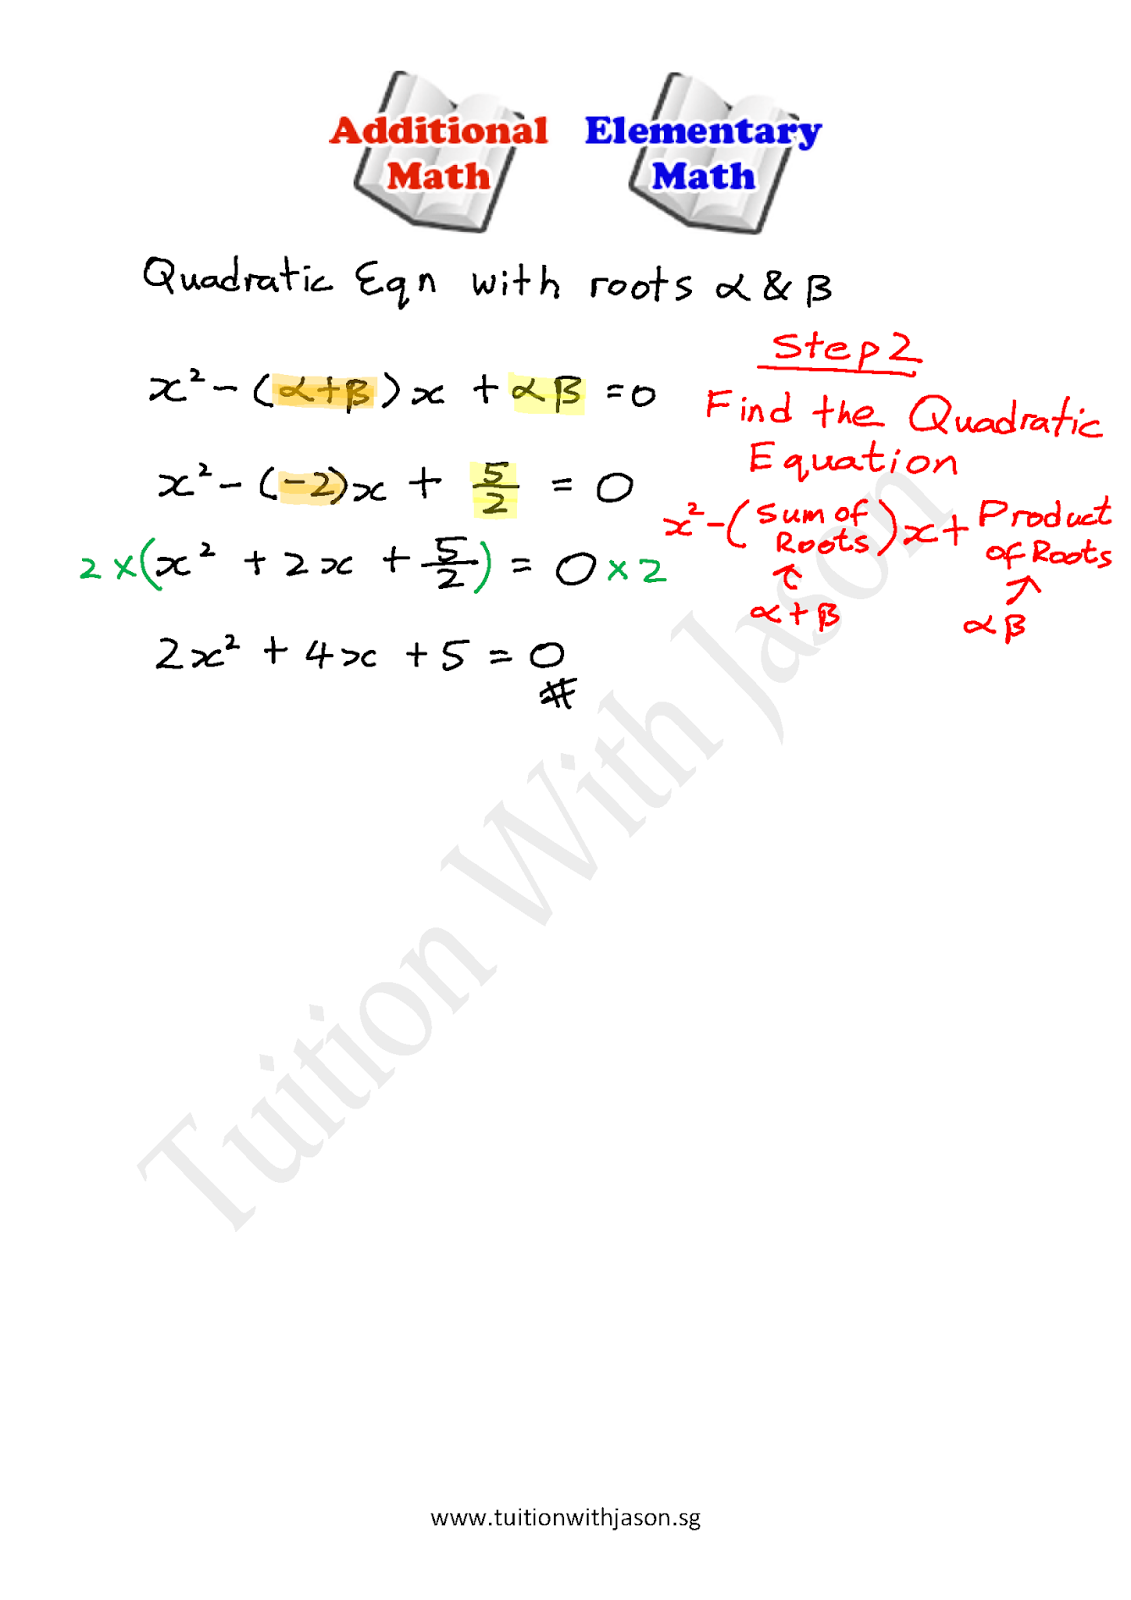 Additional Math
Elementary Math
Quadratic Eqn with roots α & β
x² - (α+β)x + αβ = 0
x² - (-2)x + 5/2 = 0
2 × (x² + 2x + 5/2) = 0 × 2
2x² + 4x + 5 = 0
#
Step 2
Find the Quadratic
Equation
x² - (Sum of Roots)x + Product of Roots
↑ ↑
α+β αβ
Tuition With Jason
www.tuitionwithjason.sg